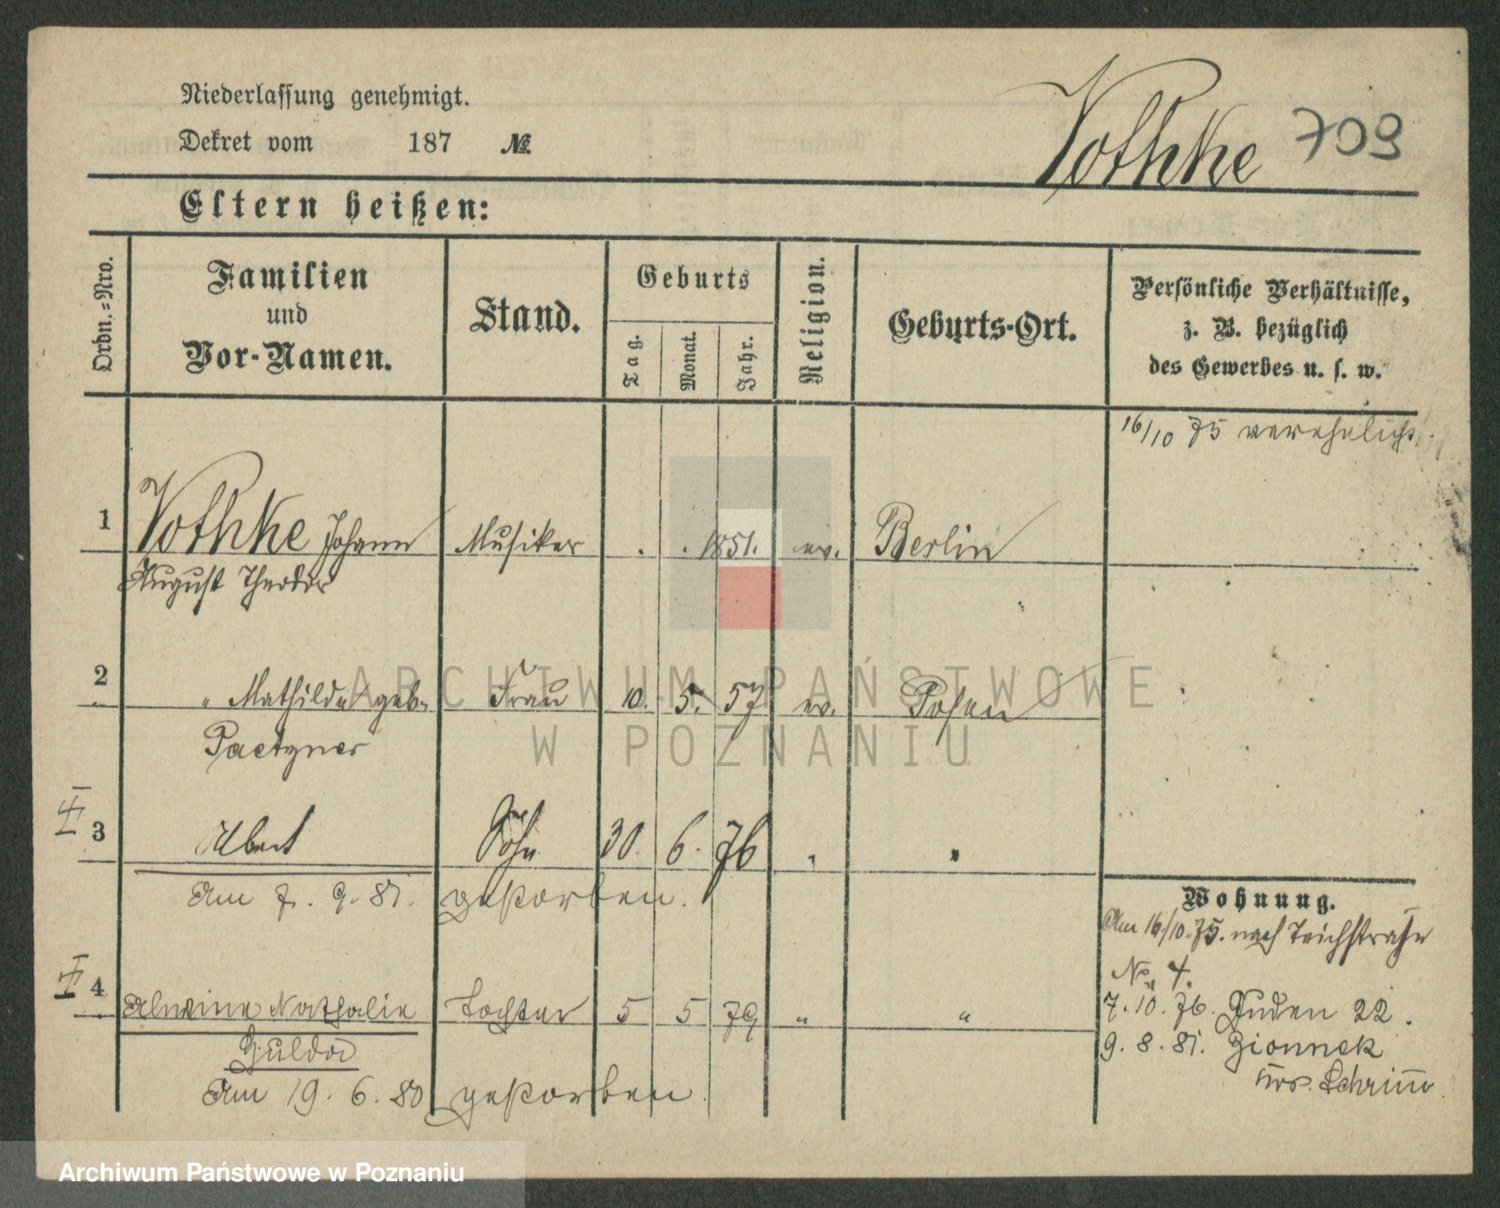 Niederlassung genehmigt.
Dekret vom 187 №
Vothke 709
Eltern heißen:
Ordn.-Nro.
Familien
und
Vor-Namen.
Stand.
Geburts
Tag.
Monat.
Jahr.
Religion.
Geburts-Ort.
Persönliche Verhältnisse,
z. B. bezüglich
des Gewerbes u. s. w.
16/10 75 verehelicht.
1 Vothke Johann Musiker . . 1851. ev. Berlin
August Theodor
2 " Mathilde geb. Frau 10. 5. 57 ev. Posen
ARCHIWUM PAŃSTWOWE
W POZNANIU
3 Albert Sohn 30. 6. 76 " "
Am 7. 9. 81. gestorben.
Wohnung.
Am 16/10. 75. nach Teichstraße
No. 4.
4 Alwine Nathalie Tochter 5 5 79 " "
7. 10. 76. Juden 22.
Hulda
9. 8. 81. Zionnek
Krs. Schrimm.
Am 19. 6. 80 gestorben.
Archiwum Państwowe w Poznaniu